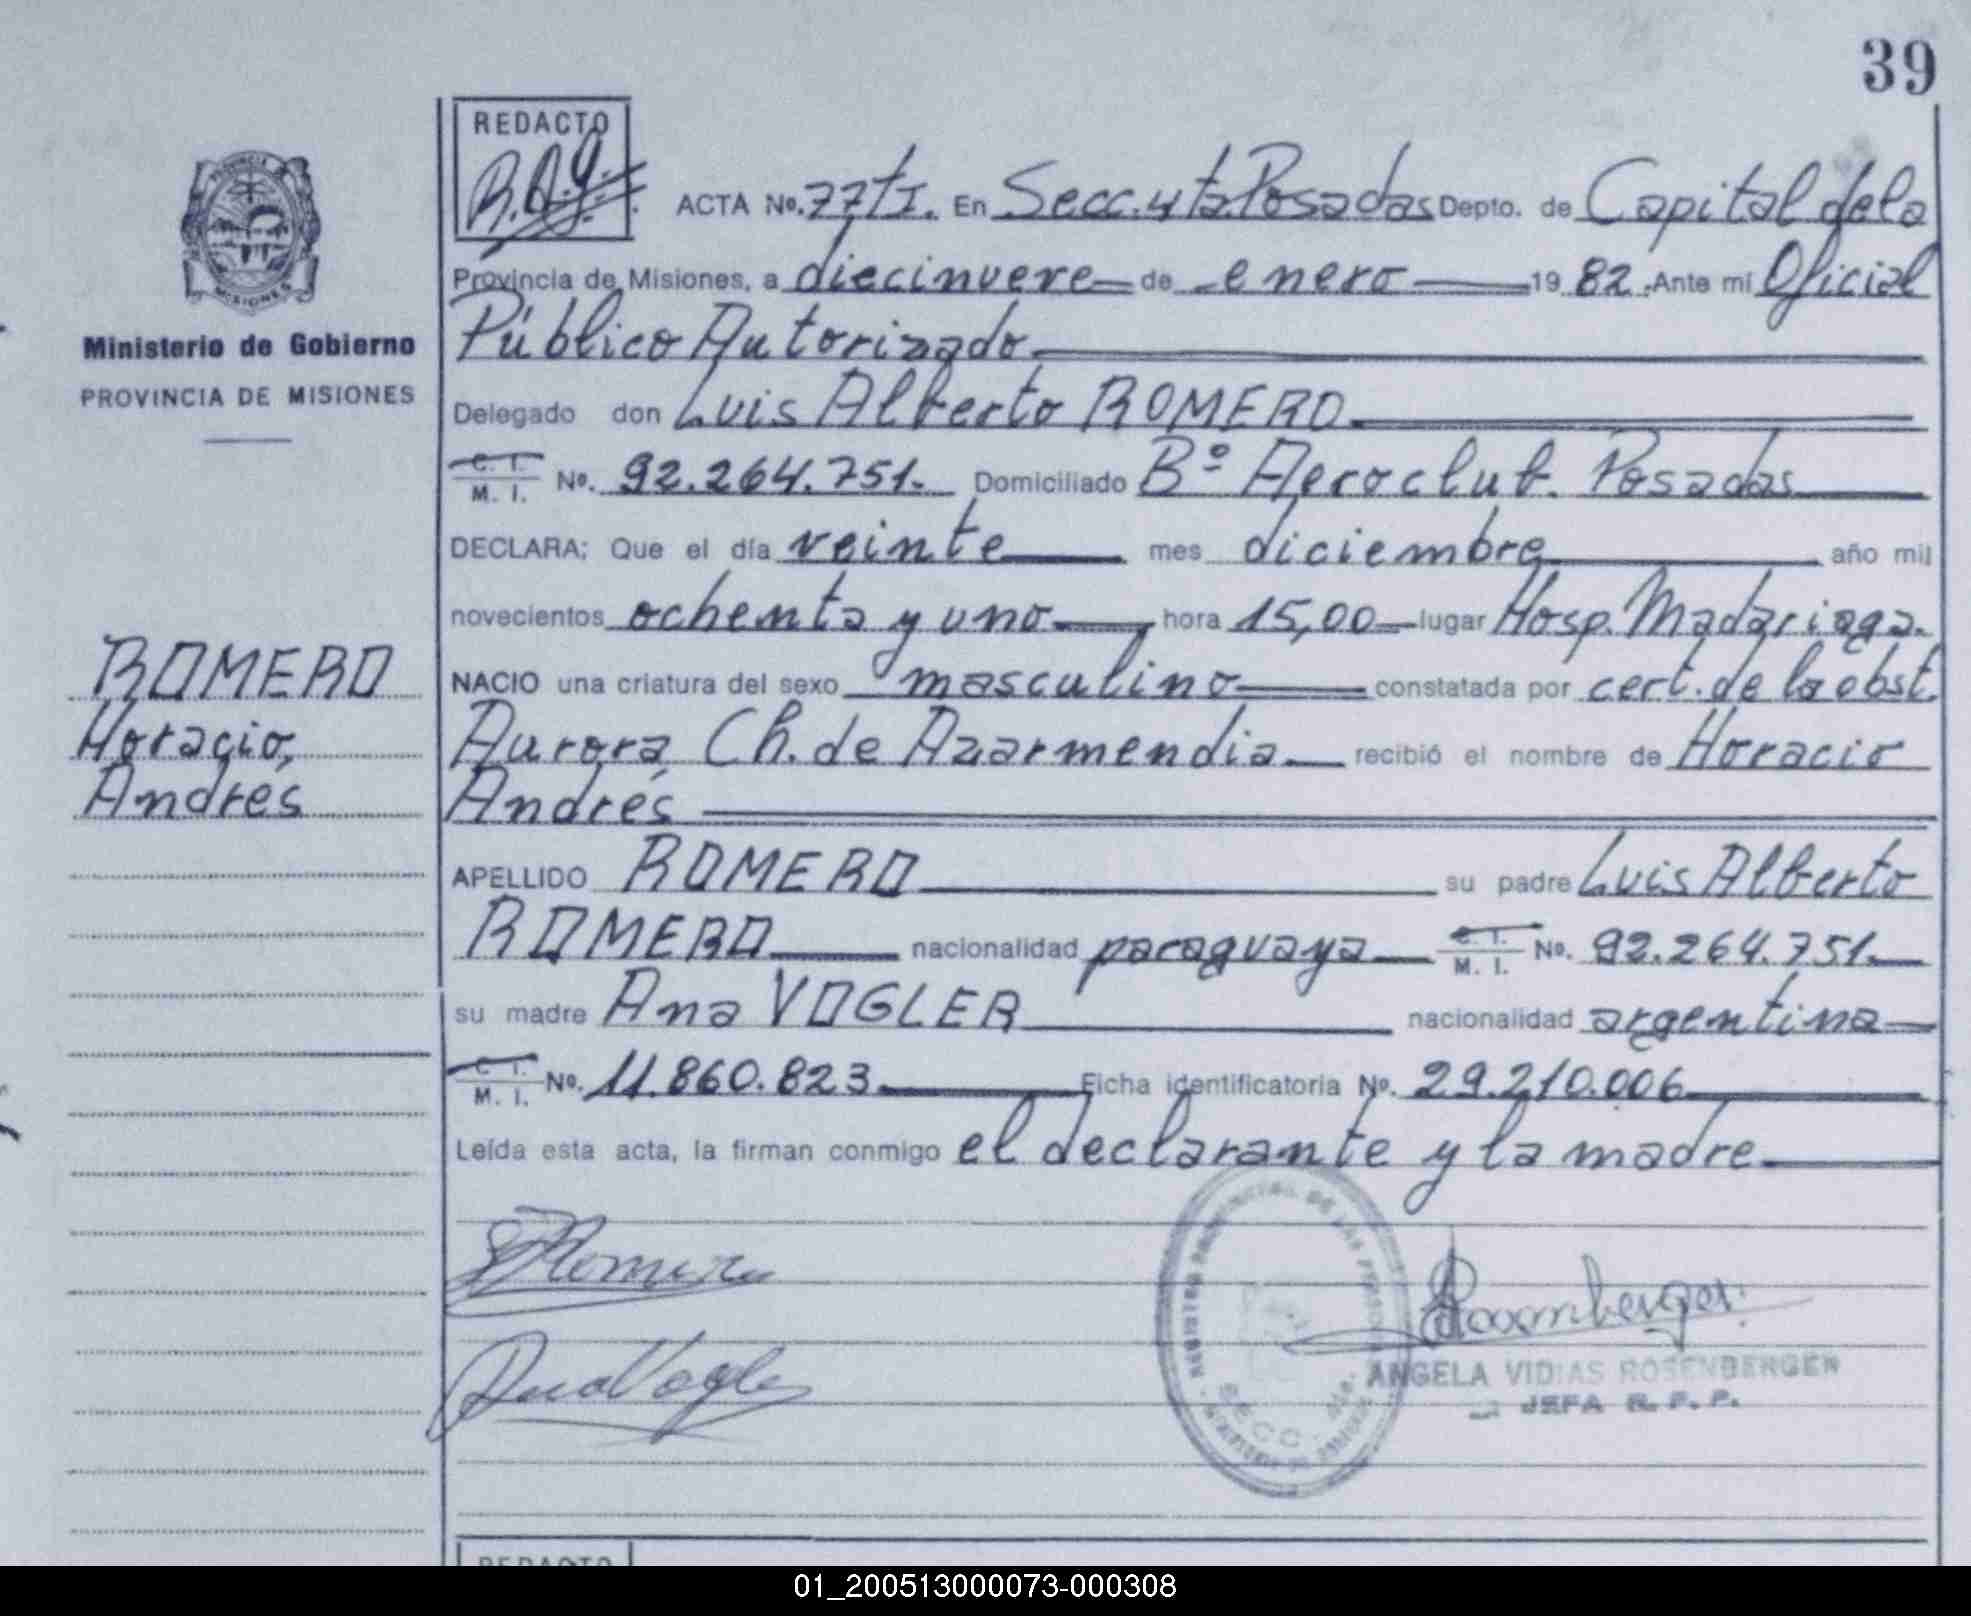 39
REDACTO
R.A.J.
ACTA No. 77 tI. En Secc. 4ta Posadas Depto. de Capital de la
Provincia de Misiones, a diecinueve de enero 1982. Ante mí Oficial
Público Autorizado
Delegado don Luis Alberto ROMERO
C. I.
M. I. No. 92.264.751. Domiciliado Bº Aeroclub. Posadas
DECLARA; Que el día veinte mes diciembre año mil
novecientos ochenta y uno hora 15,00 lugar Hosp. Madariaga.
NACIO una criatura del sexo masculino constatada por cert. de la obst.
Aurora Ch. de Azarmendia recibió el nombre de Horacio
Andrés
APELLIDO ROMERO su padre Luis Alberto
ROMERO nacionalidad paraguaya C. I. M. I. No. 92.264.751.
su madre Ana VOGLER nacionalidad argentina
C. I.
M. I. No. 11.860.823 Ficha identificatoria No. 29.210.006
Leída esta acta, la firman conmigo el declarante y la madre
PROVINCIA
MISIONES
Ministerio de Gobierno
PROVINCIA DE MISIONES
ROMERO
Horacio,
Andrés
Romero
Ana Vogler
REGISTRO PROVINCIAL DE LAS
SECC. 4ta.
ANGELA VIDIAS ROSENBERGER
JEFA R. P. P.
REDACTO
01_200513000073-000308